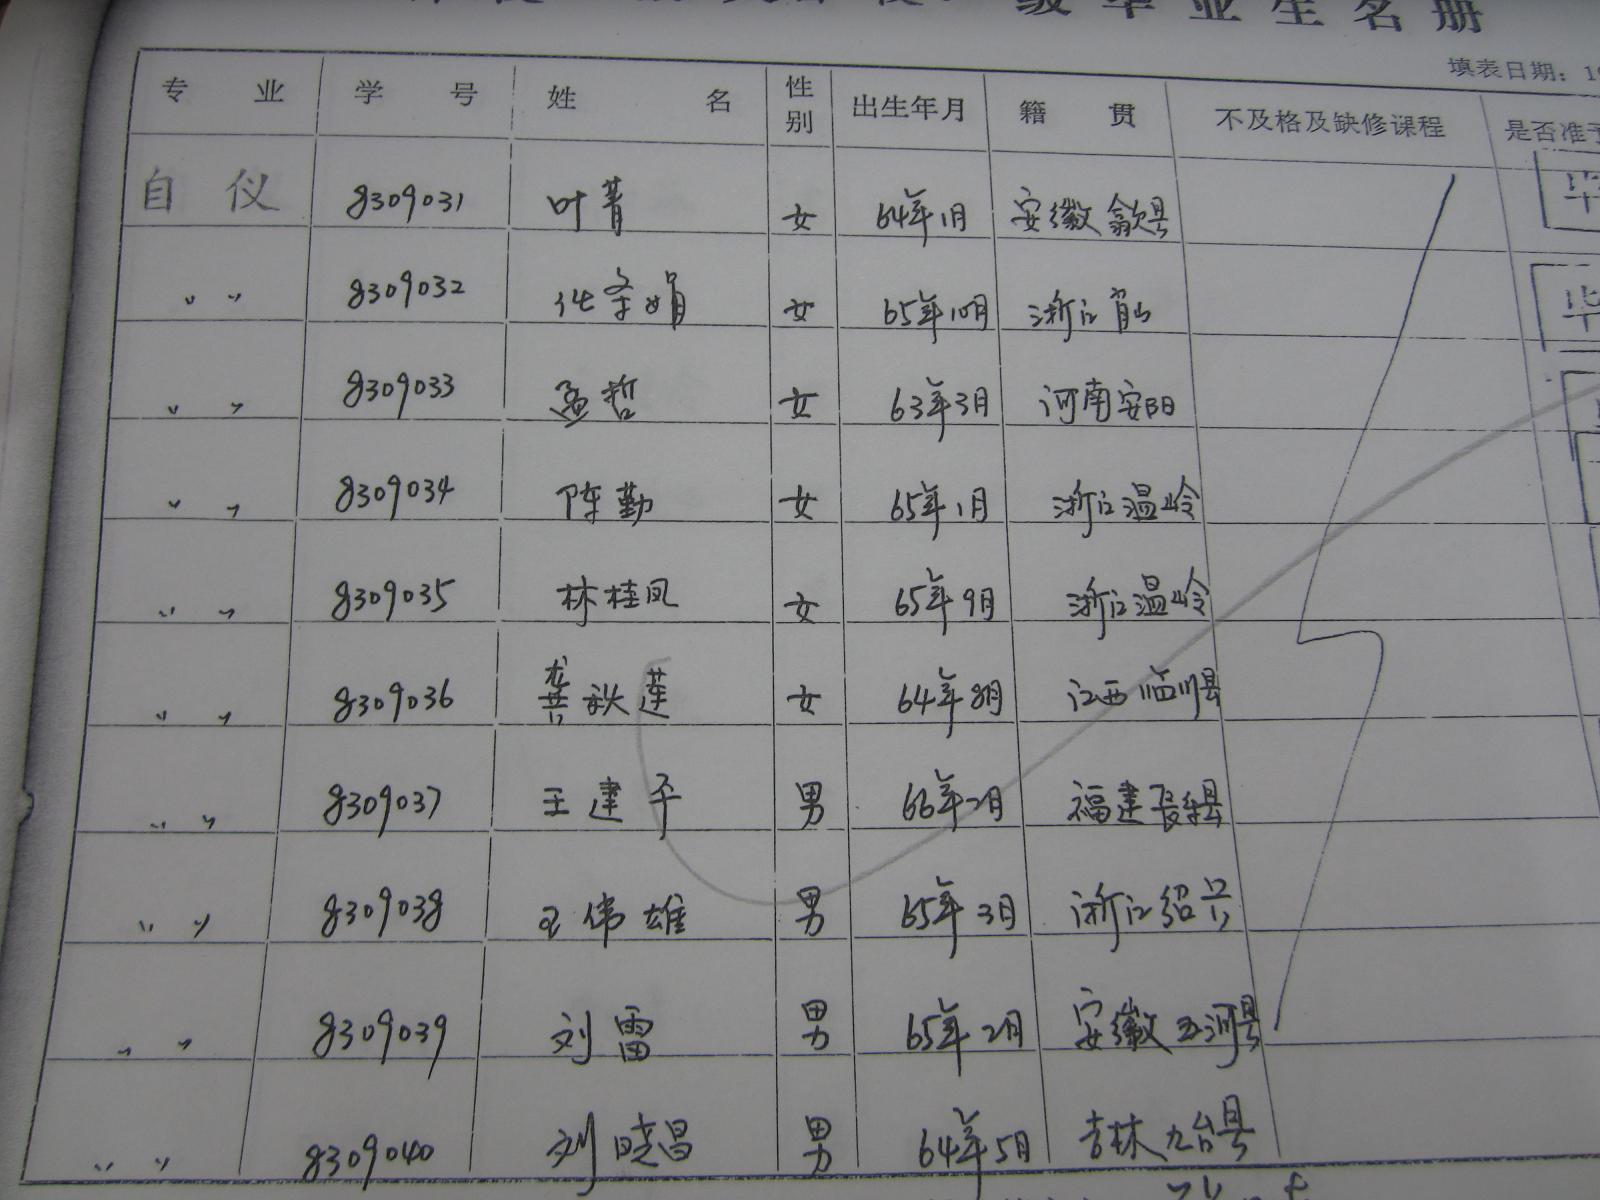 级毕业生名册
填表日期：19
专业 学号 姓名 性别 出生年月 籍贯 不及格及缺修课程 是否准予
自仪 8309031 叶菁 女 64年1月 安徽歙县 毕
〃 〃 8309032 女 65年10月 浙江萧山 毕
〃 〃 8309033 孟哲 女 63年3月 河南安阳
〃 〃 8309034 陈勤 女 65年1月 浙江温岭
〃 〃 8309035 林桂凤 女 65年9月 浙江温岭
〃 〃 8309036 龚秋莲 女 64年8月 江西临川县
〃 〃 8309037 王建平 男 66年2月 福建长乐县
〃 〃 8309038 王伟雄 男 65年3月 浙江绍兴
〃 〃 8309039 刘雷 男 65年2月 安徽五河县
〃 〃 8309040 刘晓昌 男 64年5月 吉林九台县